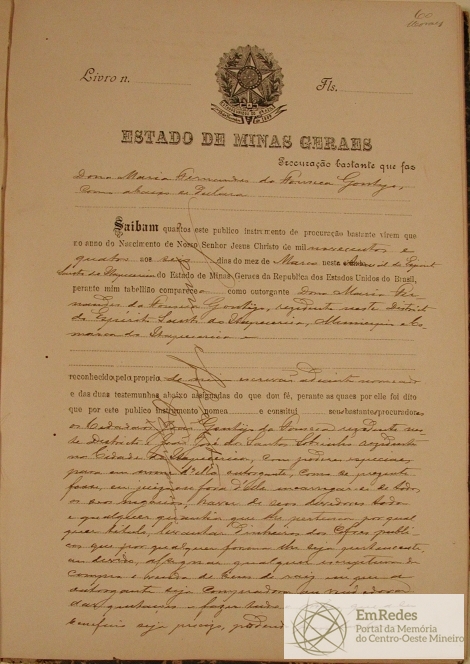 60
Livro n.
Fls.
ESTADO DE MINAS GERAES
Procuração bastante que faz
Dona Maria Fernandes da Fonseca Gontijo,
como abaixo se declara
Saibam quantos este publico instrumento de procuração bastante virem que
no anno do Nascimento de Nosso Senhor Jesus Christo de mil novecentos e
quatro aos seis dias do mez de Março neste
Santo de Itapecerica do Estado de Minas Geraes da Republica dos Estados Unidos do Brasil,
perante mim tabellião compareceu como outorgante Dona Maria Fer-
nandes da Fonseca Gontijo, rezidente neste Districto
do Espirito Santo de Itapecerica, Municipio e Co-
marca de Itapecerica e
reconhecida pela propria de mim escrivão adiante nomeado
e das duas testemunhas abaixo assignadas do que dou fé, perante as quaes por elle foi dito
que por este publico instrumento nomea e constitue seus bastantes procuradores
os Cidadãos Gontijo da Fonseca rezidente nes-
te Districto e José dos Santos Sobrinho rezidente
na Cidade de Itapecerica, com poderes especiaes,
para em nome d'ella outorgante, como se prezente
fosse, em juizo ou fora d'elle encarregar-se de todos
os seos negocios, haver de seos devedores toda
e qualquer quantia que lhe pertença por qual
quer titulo, levantar dinheiros dos Cofres publi-
cos que por qualquer forma lhe seja pertencente,
assignar qualquer escriptura de
compra e venda de bens de raiz em que a
outorgante seja compradora ou vendedora
dar quitações e fazer tudo
beneficio seja precizo, podendo
EmRedes
Portal da Memória
do Centro-Oeste Mineiro